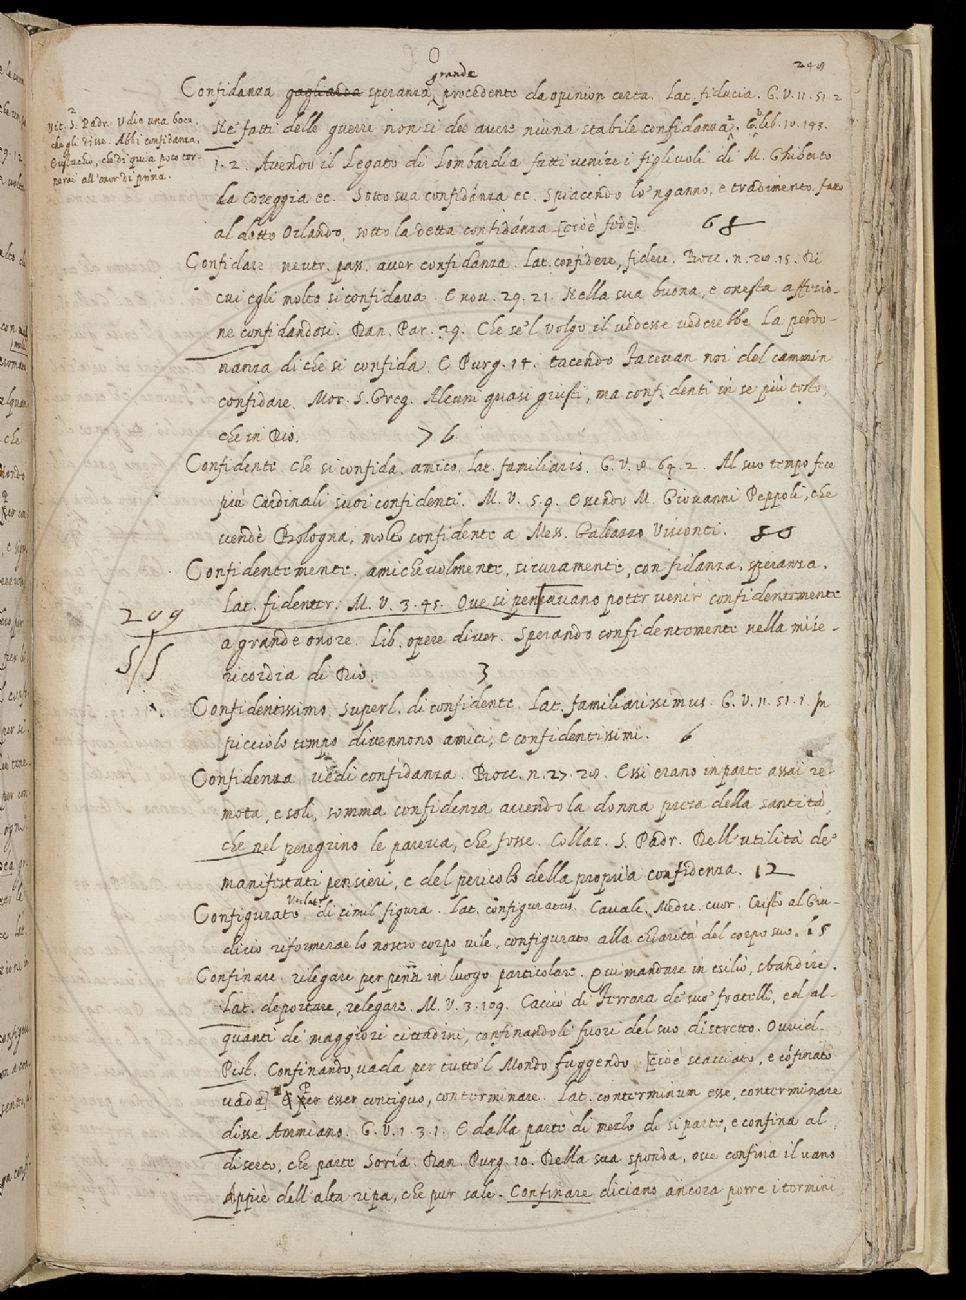 249
grande
Confidanza gagliarda speranza, procedente da opinion certa. Lat. fiducia. G. V. 11. 51. 2
Ne' fatti delle guerre non si dee avere niuna stabile confidanza. G. lib. 10. 143.
Vit. S. Padr. Udio una boce,
che gli disse. Abbi confidanza,
Guglielmo, che di qui a poco tor-
nerai all'onor di prima.
1. 2. Avendo il Legato di Lombardia fatti venire i figliuoli di M. Ghiberto
da Coreggia ec. Sotto sua confidanza ec. Spiacendo lo 'nganno, e tradimento fatto
al dotto Orlando, sotto la detta confidanza [cioè fede]. 68
Confidare neutr. pass. aver confidanza. Lat. confidere, fidere. Bocc. n. 28. 15. Di
cui egli molto si confidava. E nov. 29. 21. Nella sua buona, e onesta affezio-
ne confidandosi. Dan. Par. 29. Che se 'l volgo il vedesse vederebbe La perdo-
nanza di che si confida. E Purg. 14. tacendo Facevan noi del cammin
confidare. Mor. S. Greg. Alcuni quasi giusti, ma confidenti in se più tosto,
che in Dio. 76
Confidente che si confida. amico. Lat. familiaris. G. V. 8. 64. 2. Al suo tempo fece
più Cardinali suoi confidenti. M. V. 5. 9. Essendo M. Giovanni Peppoli, che
vendè Bologna, molto confidente a Mess. Galeazzo Visconti. 50
Confidentemente. amichevolmente, sicuramente, con fidanza, speranza.
Lat. fidenter. M. V. 3. 45. Ove si pensavano poter venir confidentemente
209
a grande onore. Lib. opere diver. Sperando confidentemente nella mise-
55
ricordia di Dio. 3
Confidentissimo superl. di confidente. Lat. familiarissimus. G. V. 11. 51. 1. In
picciolo tempo divennono amici, e confidentissimi. 6
Confidenza vedi confidanza. Bocc. n. 27. 28. Essi erano in parte assai re-
mota, e soli, somma confidenza avendo la donna presa della santità,
che nel peregrino le pareva, che fosse. Collaz. S. Padr. Dell'utilità de'
manifestati pensieri, e del pericolo della propria confidenza. 12
Configurato di simil figura. Lat. configuratus. Cavalc. Medic. cuor. Cristo al Giu-
dicio riformerae lo nostro corpo vile, configurato alla chiarità del corpo suo. 15
Confinare. rilegare per pena in luogo particolare. o ver mandare in esilio, sbandire.
Lat. deportare, relegare. M. V. 3. 109. Cacciò di Ferrara de' suo' fratelli, ed al-
quanti de' maggiori cittadini, confinandoli fuori del suo distretto. Ovvid.
Pist. Confinando, vada per tutto 'l Mondo fuggendo [cioè scacciato, e cõfinato
vada] E per esser contiguo, conterminare. Lat. conterminum esse, conterminare
disse Ammiano. G. V. 1. 3. 1. E dalla parte di merzo dì si parte, e confina al
diserto, che parte Soría. Dan. Purg. 10. Della sua sponda, ove confina il vano
Appiè dell'alta ripa, che pur sale. Confinare diciano ancora porre i termini